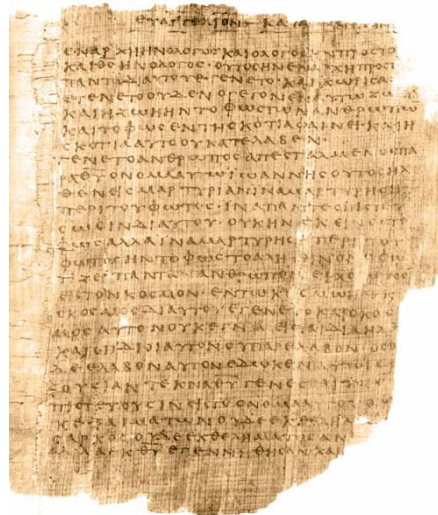 ΕΥΑΓΓΕΛΙΟΝ ΚΑΤΑ
ΕΝΑΡΧΗΗΝΟΛΟΓΟΣΚΑΙΟΛΟΓΟΣΗΝΠΡΟΣΤΟ
ΚΑΙΘΣΗΝΟΛΟΓΟΣ·ΟΥΤΟΣΗΝΕΝΑΡΧΗΠΡΟΣ
ΠΑΝΤΑΔΙΑΥΤΟΥΕΓΕΝΕΤΟ·ΚΑΙΧΩΡΙΣΑΥ
ΕΓΕΝΕΤΟΟΥΔΕΝΟΓΕΓΟΝΕΝΕΝΑΥΤΩΖΩΗ
ΚΑΙΗΖΩΗΗΝΤΟΦΩΣΤΩΝΑΝΘΡΩΠΩ
ΚΑΙΤΟΦΩΣΕΝΤΗΣΚΟΤΙΑΦΑΙΝΕΙ·ΚΑΙΗ
ΣΚΟΤΙΑΑΥΤΟΟΥΚΑΤΕΛΑΒΕΝ
ΕΓΕΝΕΤΟΑΝΘΡΩΠΟΣΑΠΕΣΤΑΛΜΕΝΟΣΠΑ
ΡΑΘΥΟΝΟΜΑΑΥΤΩΙΩΑΝΝΗΣΟΥΤΟΣΗΛ
ΘΕΝΕΙΣΜΑΡΤΥΡΙΑΝΙΝΑΜΑΡΤΥΡΗΣΗ
ΠΕΡΙΤΟΥΦΩΤΟΣ·ΙΝΑΠΑΝΤΕΣΠΙΣΤΕΥ
ΣΩΣΙΝΔΙΑΥΤΟΥ·ΟΥΚΗΝΕΚΕΙΝΟΣΤΟ
ΦΩΣΑΛΛΑΙΝΑΜΑΡΤΥΡΗΣΗΠΕΡΙΤΟΥ
ΦΩΤΟΣΗΝΤΟΦΩΣΤΟΑΛΗΘΙΝΟΝΟΦΩ
ΤΙΖΕΙΠΑΝΤΑΑΝΘΡΩΠΟΝΕΡΧΟΜΕΝΟΝ
ΕΙΣΤΟΝΚΟΣΜΟΝΕΝΤΩΚΟΣΜΩΗΝΚΑΙΟ
ΚΟΣΜΟΣΔΙΑΥΤΟΥΕΓΕΝΕΤΟΚΑΙΟΚΟΣ
ΜΟΣΑΥΤΟΝΟΥΚΕΓΝΩΕΙΣΤΑΙΔΙΑΗΛΘΕ
ΚΑΙΟΙΙΔΙΟΙΑΥΤΟΝΟΥΠΑΡΕΛΑΒΟΝΟΣΟΙ
ΔΕΕΛΑΒΟΝΑΥΤΟΝΕΔΩΚΕΝΑΥΤΟΙΣΕ
ΞΟΥΣΙΑΝΤΕΚΝΑΘΥΓΕΝΕΣΘΑΙΤΟΙΣ
ΠΙΣΤΕΥΟΥΣΙΝΕΙΣΤΟΟΝΟΜΑΑΥΤΟΥΟΙΟΥ
ΚΕΞΑΙΜΑΤΩΝΟΥΔΕΕΚΘΕΛΗΜΑΤΟΣ
ΣΑΡΚΟΣΟΥΔΕΕΚΘΕΛΗΜΑΤΟΣΑΝ
ΑΛΛΑΕΚΘΥΕΓΕΝΝΗΘΗΣΑΝΚΑΙ